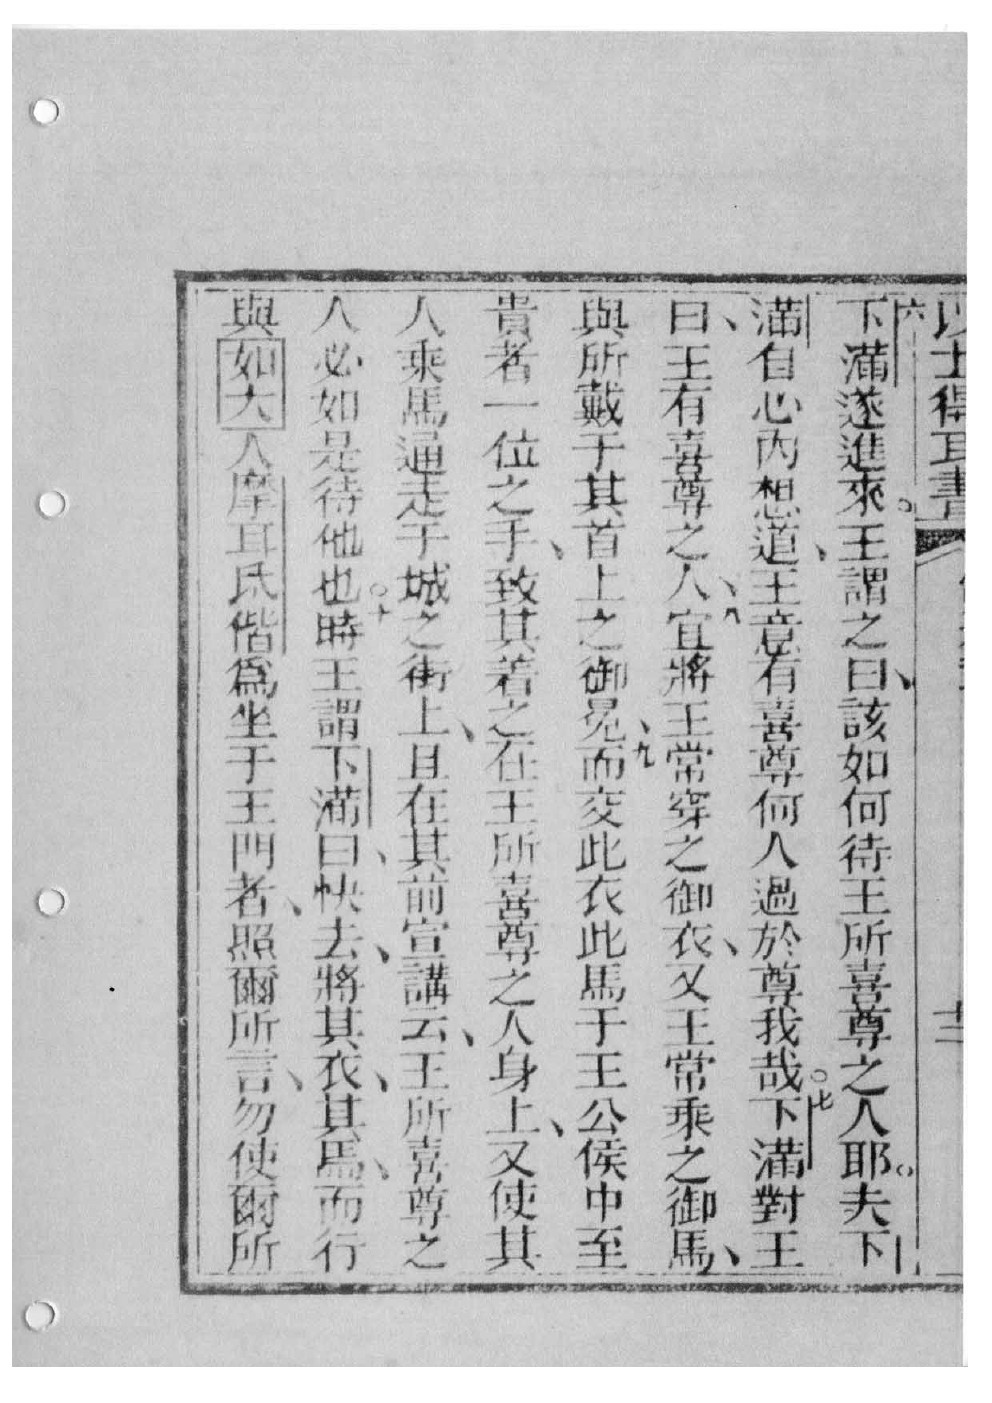 以士得耳書
十二
六下滿遂進來。王謂之曰、該如何待王所喜尊之人耶。夫下
滿自心內想道、王意有喜尊何人過於尊我哉。七下滿對王
曰、王有喜尊之人、八宜將王常穿之御衣、又王常乘之御馬、
與所戴于其首上之御冕、九而交此衣此馬于王公侯中至
貴者一位之手、致其着之在王所喜尊之人身上、又使其
人乘馬通走于城之街上、且在其前宣講云、王所喜尊之
人必如是待他也。十時王謂下滿曰、快去、將其衣、其馬、而行
與如大人摩耳氐偕為坐于王門者、照爾所言、勿使爾所